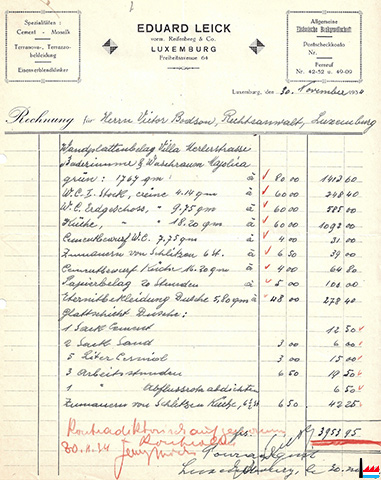 Spezialitäten:
Cement - Mosaik
Terranova-, Terrazzo-
bekleidung
Eisenverblendsteine
EDUARD LEICK
vorm. Redenberg & Co.
LUXEMBURG
Freiheitsavenue 64
Allgemeine
Elsässische Bankgesellschaft
Postscheckkonto
No.
Fernruf
Nr. 42-52 u. 49-09
Luxemburg, den 30. November 1934
Rechnung für Herrn Victor Bodson, Rechtsanwalt, Luxemburg
Wandplattenbelag Villa
Badezimmer & Waschraum Majolia
grün: 17.67 qm à 80 00 1413 60
W.C. I. Stock, crème 4.14 qm à 60 00 248 40
W.C. Erdgeschoss, " 9.75 qm à 60 00 585 00
Küche, " 18.20 qm à 60 00 1092 00
Cementbewurf W.C. 7.75 qm à 4 00 31 00
Zumauern von Schlitzen 6 St. à 6 50 39 00
Cementbewurf Küche 16.20 qm à 4 00 64 80
Papierbelag 20 Stunden à 5 00 100 00
Eternitbekleidung Dusche 5,80 qm à 48 00 278 40
Glattschicht Dusche:
1 Sack Cement 12 50
2 Sack Sand 3 00 6 00
5 Liter 3 00 15 00
3 Arbeitsstunden 6 50 19 50
1 " Abflussrohr abdichten 6 50
Zumauern von Schlitzen Küche, 6½ St 6 50 42 25
3953 95
30.11.34